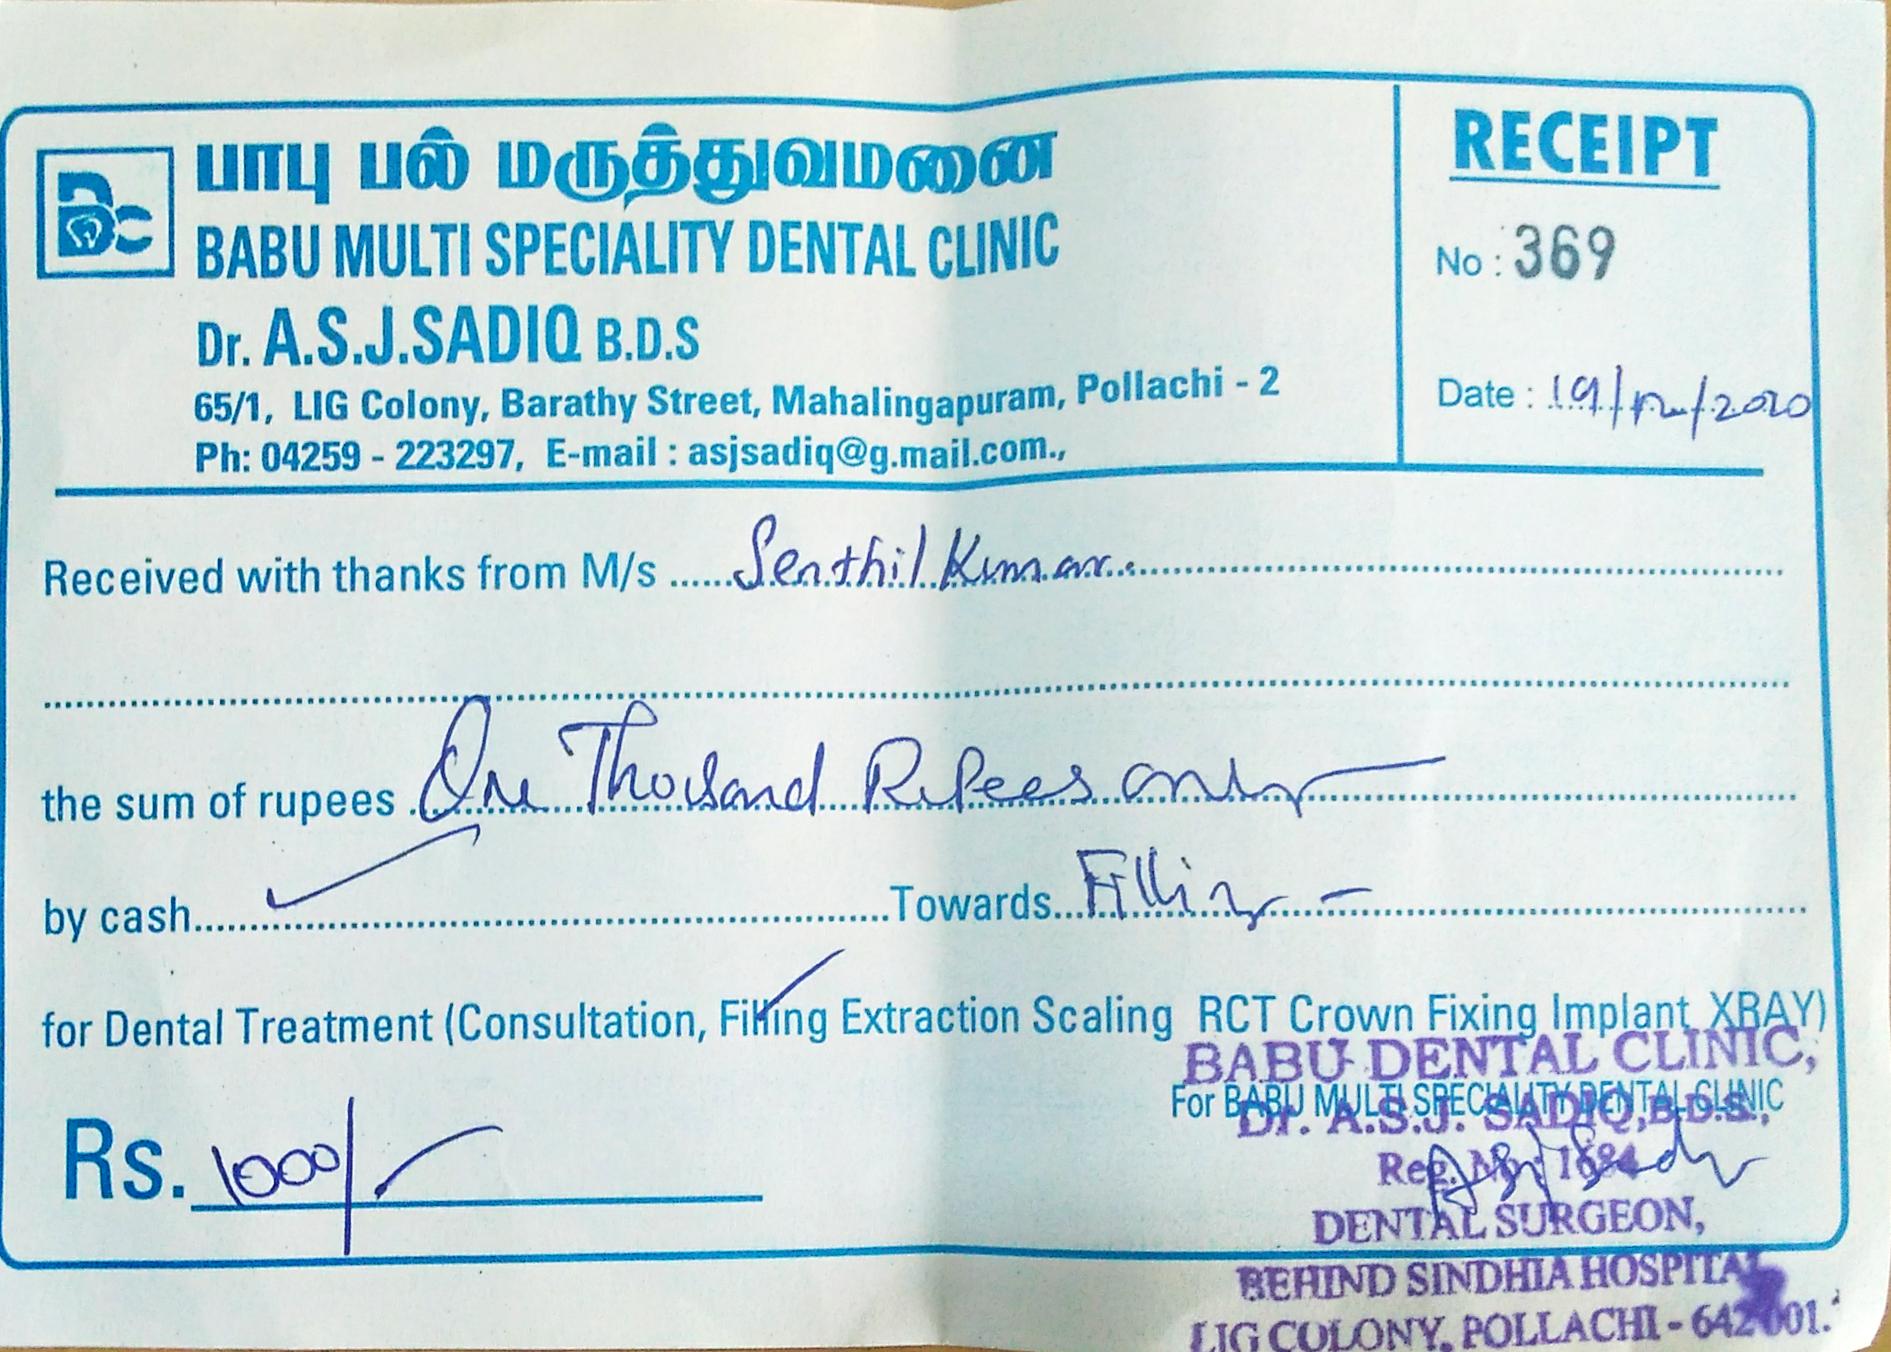 Bc
பாபு பல் மருத்துவமனை
BABU MULTI SPECIALITY DENTAL CLINIC
Dr. A.S.J.SADIQ B.D.S
65/1, LIG Colony, Barathy Street, Mahalingapuram, Pollachi - 2
Ph: 04259 - 223297, E-mail : asjsadiq@g.mail.com.,
RECEIPT
No : 369
Date : 19/12/2020
Received with thanks from M/s Senthil Kumar
the sum of rupees One Thousand Rupees only
by cash Towards Filling -
for Dental Treatment (Consultation, Filling Extraction Scaling RCT Crown Fixing Implant, XRAY)
BABU DENTAL CLINIC,
For BABU MULTI SPECIALITY DENTAL CLINIC
Dr. A.S.J. SADIQ,B.D.S.,
Reg. No : 1684
DENTAL SURGEON,
Rs. 1000/-
BEHIND SINDHIA HOSPITAL
LIG COLONY, POLLACHI - 642 001.